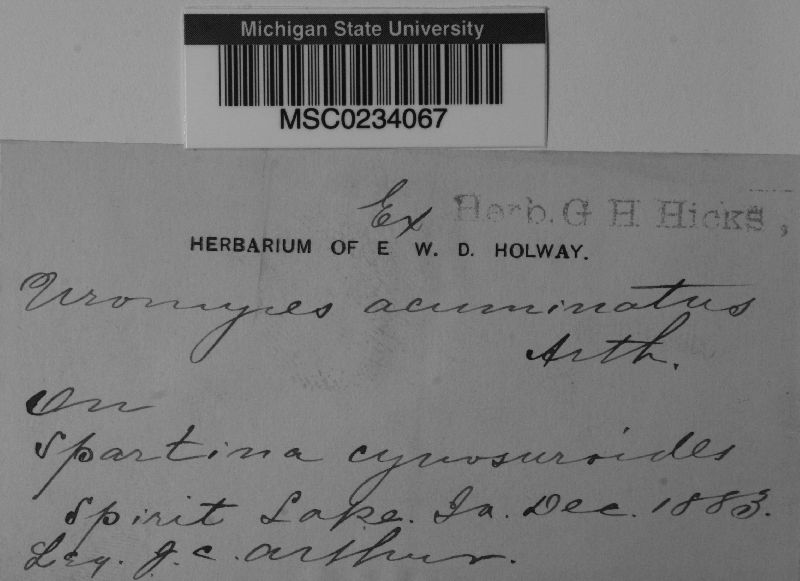 Michigan State University
MSC0234067
Ex Herb. G H Hicks,
HERBARIUM OF E W. D. HOLWAY.
Uromyces acuminatus
Arth.
On
Spartina cynosuroides
Spirit Lake. Ia. Dec. 1883.
Leg. J. C. Arthur.